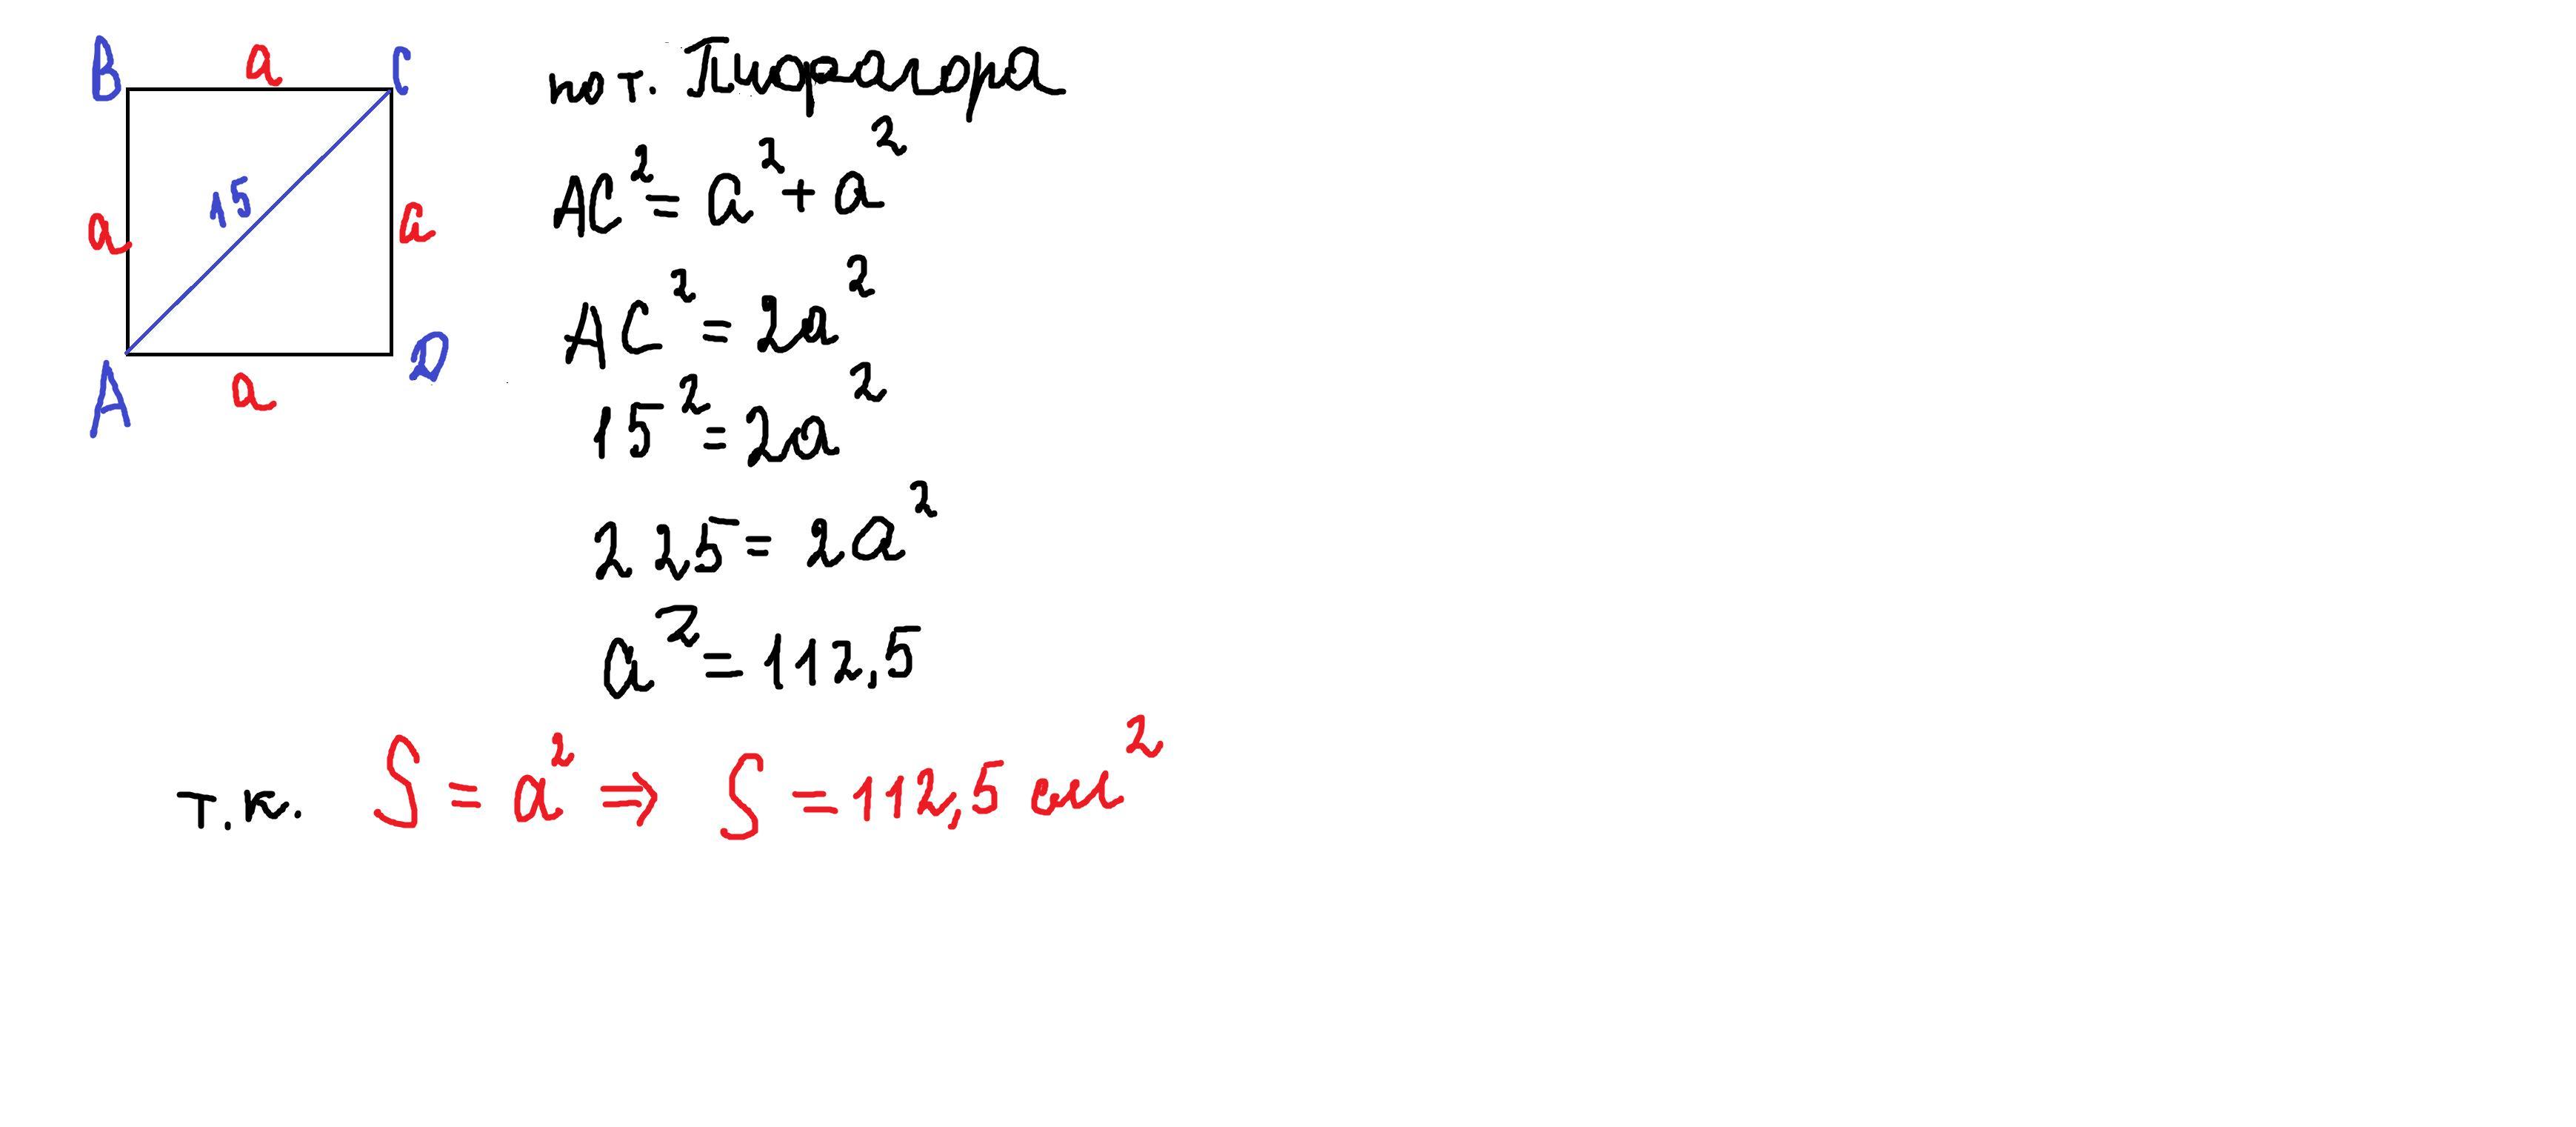 B a C
15
a a
A a D
по т. Пифагора
AC² = a² + a²
AC² = 2a²
15² = 2a²
225 = 2a²
a² = 112,5
т.к. S = a² ⇒ S = 112,5 см²